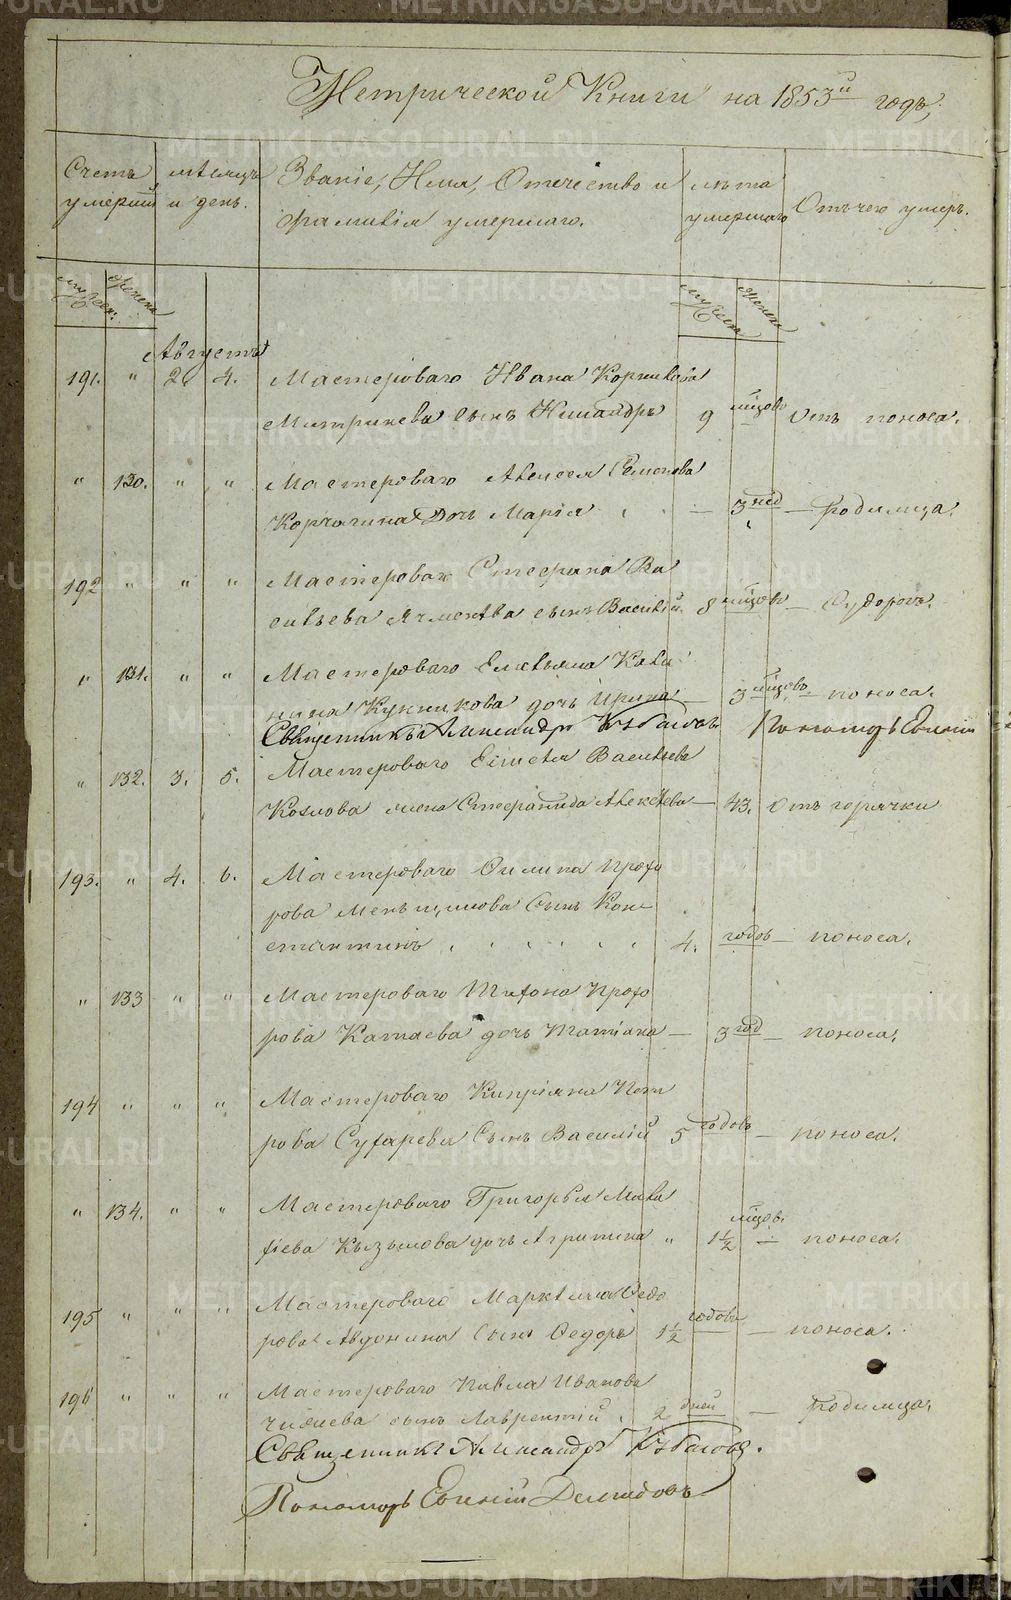 Метрической Книги на 1853й годъ,
Счетъ умерших
мѣсяцъ и день.
Званіе, Имя, Отчество и фамилія умершаго.
лѣта умершаго
Отъ чего умеръ.
мужеск. женск.
мужеск. женск.
Августъ
191. " 2. 4. Мастероваго Ивана Корнилова
Митрикева сынъ Никандръ 9 мцовъ Отъ поноса.
" 130. " " Мастероваго Алексея Семенова
Корчагина дочь Марія — 3 нед — Родимца.
192 " " " Мастероваго Стефана Ва
сильева сынъ Василій. 8 мцовъ —
" 131. " " Мастероваго Емельяна Кали
нина Кунникова дочь Ирина — 3 мцовъ — поноса.
Священникъ Александръ Пономарь Евгеній
" 132. 3. 5. Мастероваго Васильева
Козлова жена Стефанида Алексѣева — 43. Отъ горячки
193. " 4. 6. Мастероваго Филипа Прохо
рова Меньщикова Сынъ Кон
стантинъ 4. годовъ — поноса.
" 133 " " Мастероваго Тихона Прохо
рова Катаева дочь Татіана — 3 год — поноса.
194 " " " Мастероваго Кипріяна Пет
рова Сухарева Сынъ Василій 5 годовъ — поноса.
" 134. " " Мастероваго Григорья Мака
рова Кызылова дочь Агрипина " 1½ мцов. — поноса.
195 " " " Мастероваго Маркела Федо
рова Авдонина Сынъ Федоръ 1½ годовъ — поноса.
196 " " " Мастероваго Павла Иванова
сынъ Лаврентій. 2 дней — Родимца.
Священникъ Александръ
Пономарь Евгеній Демидовъ
METRIKI.GASO-URAL.RU